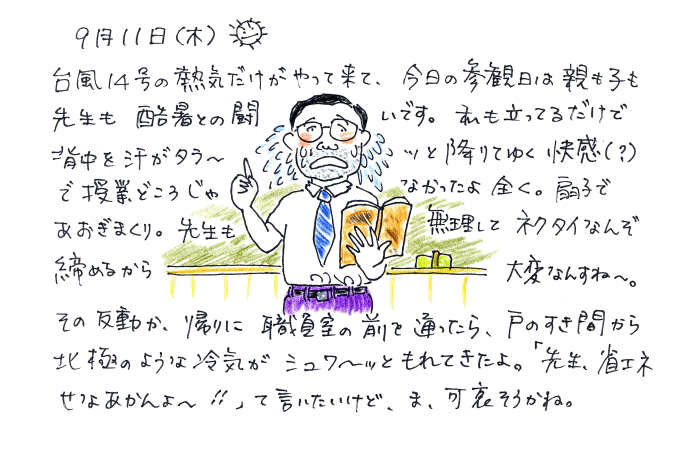 9月11日(木)
台風14号の熱気だけがやって来て、今日の参観日は親も子も
先生も酷暑との闘いです。私も立ってるだけで
背中を汗がタラ〜ッと降りてゆく快感(?)
で授業どころじゃなかったよ全く。扇子で
あおぎまくり。先生も無理してネクタイなんぞ
締めるから大変なんすね〜。
その反動か、帰りに職員室の前を通ったら、戸のすき間から
北極のような冷気がシュワ〜ッともれてきたよ。「先生、省エネ
せなあかんよ〜!!」て言いたいけど、ま、可哀そうかね。